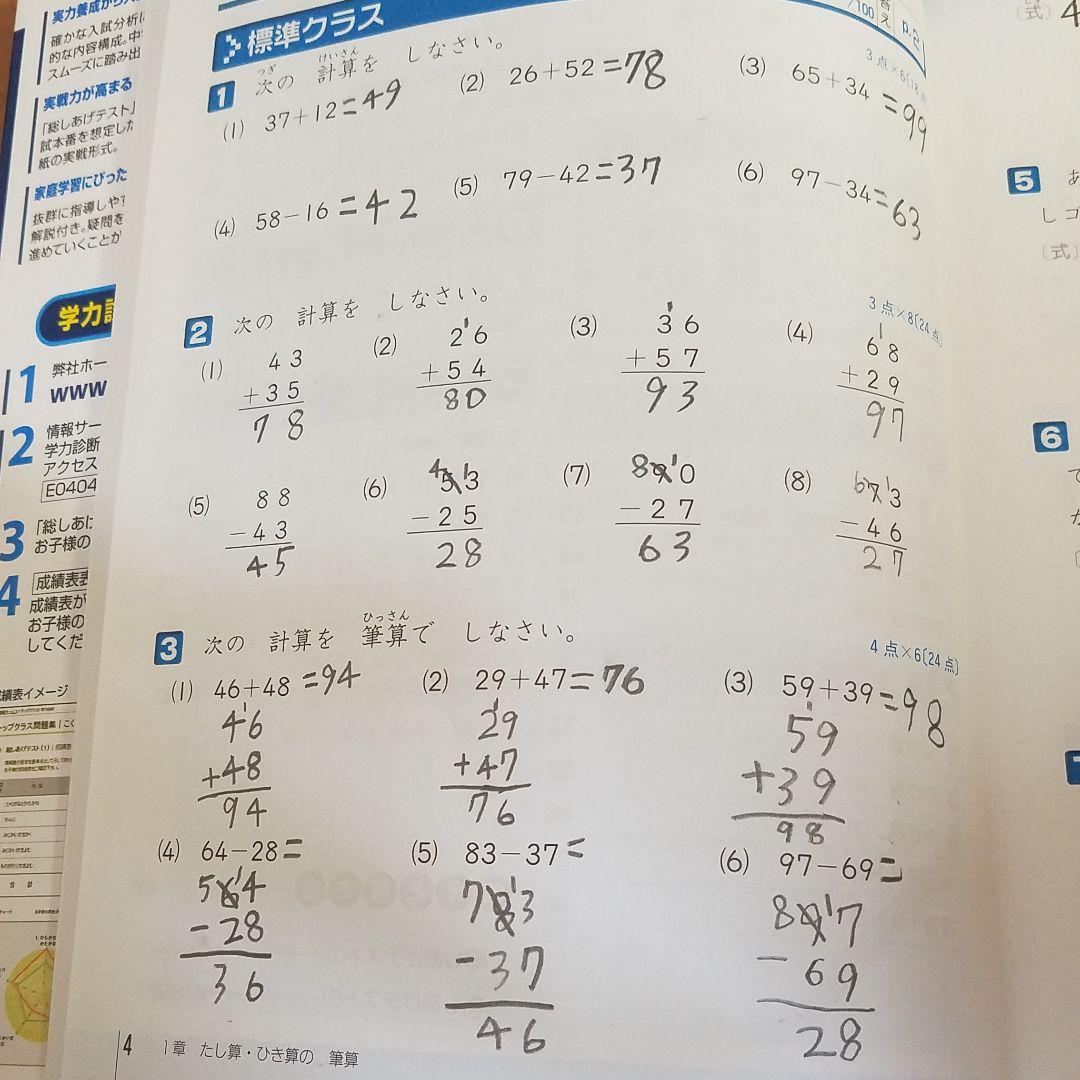 実力養成から
確かな入試分析に
的な内容構成。中
スムーズに踏み出
実戦力が高まる
「総しあげテスト」
試本番を想定した
紙の実戦形式。
家庭学習にぴった
抜群に指導しやす
解説付き。疑問を
進めていくことが
学力診
1 弊社ホー
www
2 情報サー
学力診断
アクセス
E0404
3 「総しあげ
お子様の
4 成績表表
成績表が
お子様の
してくだ
成績表イメージ
標準クラス
/100
答え
1 次の 計算を しなさい。
つぎ けいさん
3点×6〔18点
(1) 37+12=49
(2) 26+52=78
(3) 65+34=99
(4) 58-16=42
(5) 79-42=37
(6) 97-34=63
2 次の 計算を しなさい。
3点×8〔24点〕
(1) 43
+35
78
(2) 2 1 6
+54
80
(3) 1
36
+57
93
(4) 1
68
+29
97
(5) 88
-43
45
(6) 4 5 1 3
-25
28
(7) 8 9 1 0
-27
63
(8) 6 7 1 3
-46
27
3 次の 計算を 筆算で しなさい。
ひっさん
4点×6〔24点〕
(1) 46+48=94
4 1 6
+48
94
(2) 29+47=76
1
29
+47
76
(3) 59+39=98
1
59
+39
98
(4) 64-28=
5 6 1 4
-28
36
(5) 83-37=
7 8 1 3
-37
46
(6) 97-69=
8 9 1 7
-69
28
4 1章 たし算・ひき算の 筆算
〔式〕4
5 あ
しコ
〔式〕
6
で